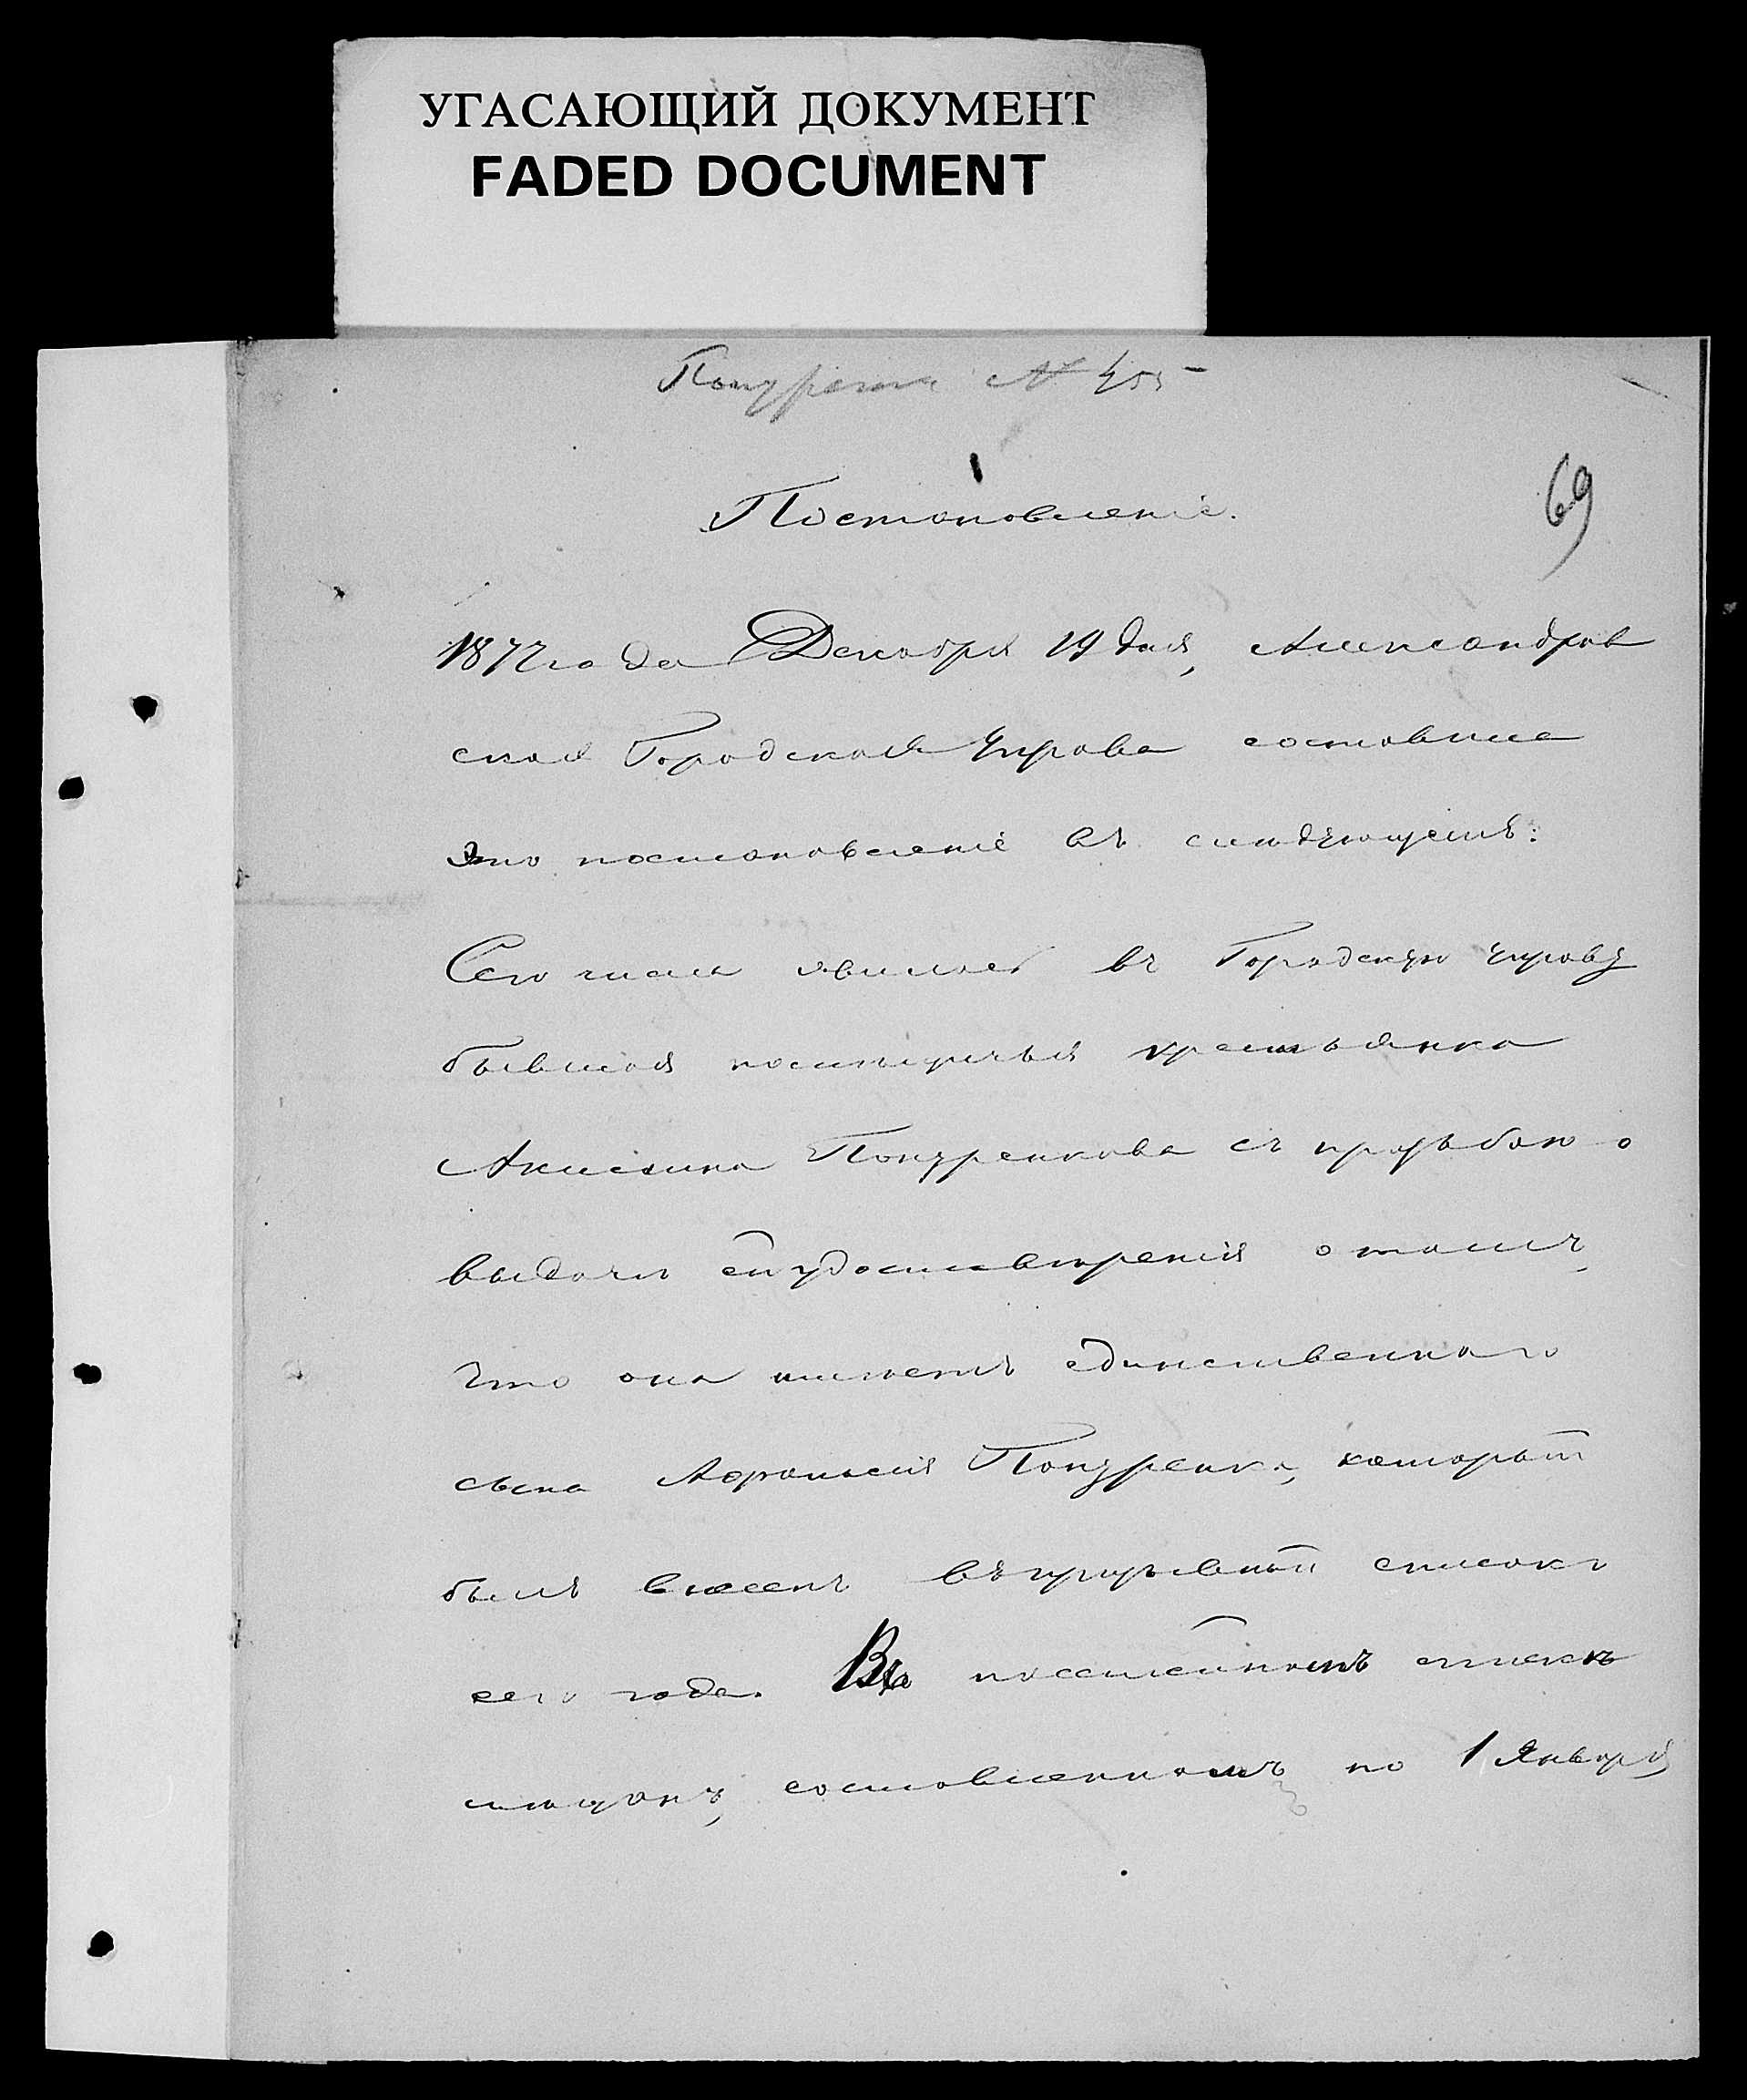 УГАСАЮЩИЙ ДОКУМЕНТ
FADED DOCUMENT
№ 455
69
Постановленіе.
1877 года Декабря 19 дня, Александров
ская Городская Управа составила
это постановленіе въ слѣдующемъ:
Сего числа явилась въ Городскую управу
бывшая помѣщичья крестьянка
Акилина Понуренкова съ прозьбою о
выдачи ей удостовѣренія о томъ,
что она имѣетъ единственнаго
сына Афанасія Понуренка, который
былъ внесенъ въ призывной списокъ
сего года. Въ посемейномъ спискѣ
мѣщанъ, составленномъ по 1 Января